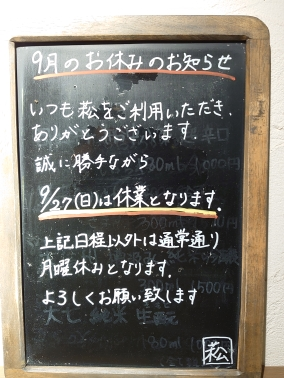 9月のお休みのお知らせ
いつも菘をご利用いただき、
ありがとうございます。
誠に勝手ながら
9/27(日)は休業となります。
上記日程以外は通常通り
月曜休みとなります。
よろしくお願い致します
菘